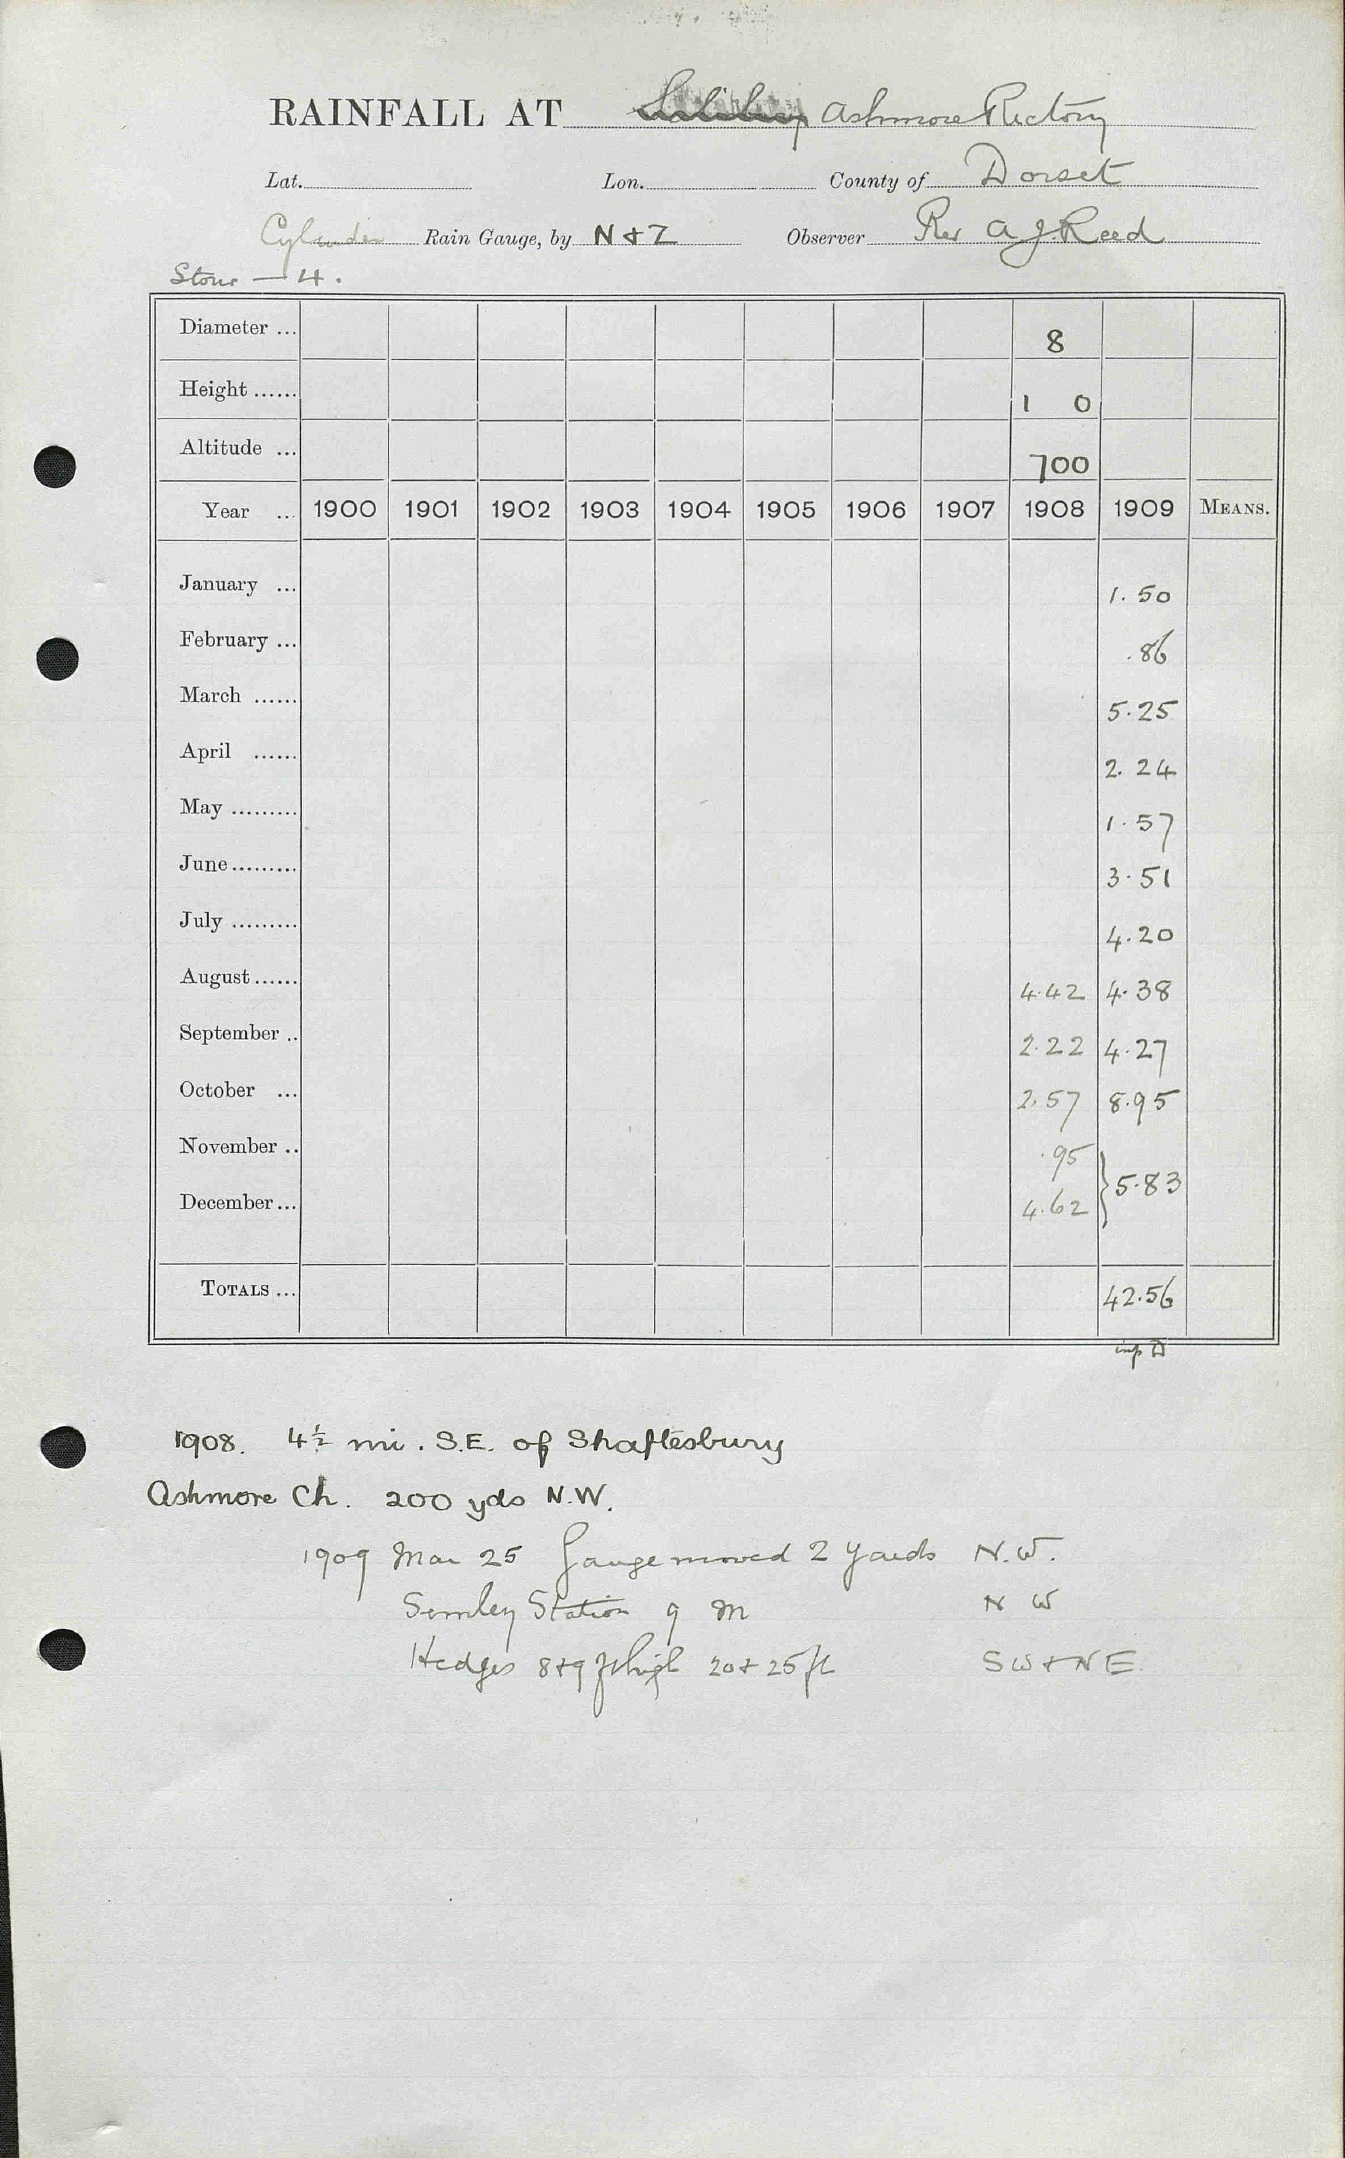 RAINFALL AT Ashmore Rectory
Lat. Lon. County of Dorset
Cylinder Rain Gauge, by N & Z Observer Rev A J. Reed
Stour — 4.
Diameter ... 8
Height ...... 1 0
Altitude ... 700
Year ... 1900 1901 1902 1903 1904 1905 1906 1907 1908 1909 MEANS.
January ... 1.50
February ... .86
March ...... 5.25
April ...... 2.24
May ......... 1.57
June ......... 3.51
July ......... 4.20
August ...... 4.42 4.38
September .. 2.22 4.27
October ... 2.57 8.95
November .. .95
December ... 4.62 } 5.83
TOTALS ... 42.56
imp D
1908. 4½ mi. S.E. of Shaftesbury
Ashmore Ch. 200 yds N.W.
1909 Mar 25 Gauge moved 2 yards N.W.
Semley Station 9 m N W
Hedges 8 & 9 ft high 20 & 25 ft SW & NE.